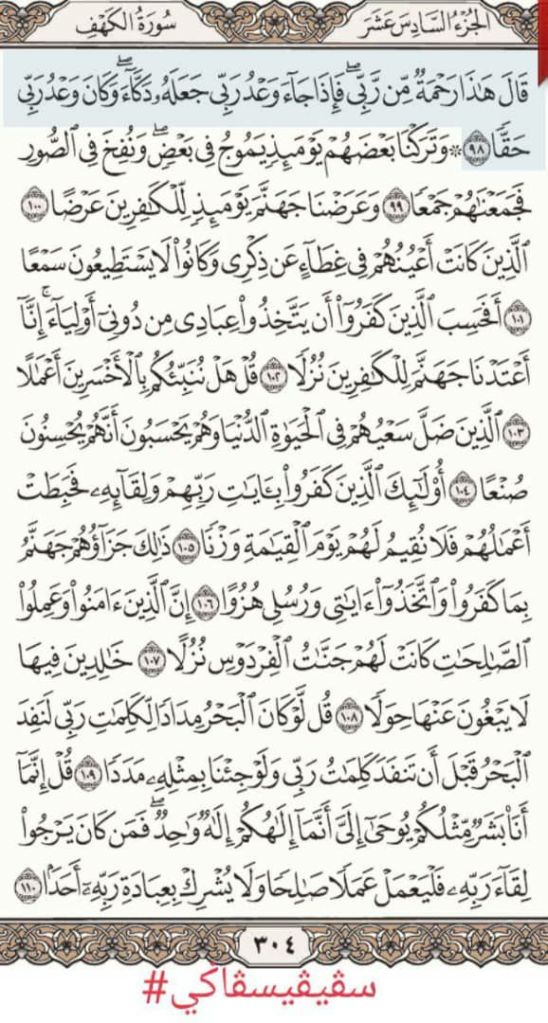 الجُزْءُ السَّادِسَ عَشَرَ سُورَةُ الكَهْفِ
قَالَ هَٰذَا رَحْمَةٌ مِّن رَّبِّي ۖ فَإِذَا جَآءَ وَعْدُ رَبِّي جَعَلَهُۥ دَكَّآءَ ۖ وَكَانَ وَعْدُ رَبِّي
حَقًّا ٩٨ ۞ وَتَرَكْنَا بَعْضَهُمْ يَوْمَئِذٍ يَمُوجُ فِي بَعْضٍ ۖ وَنُفِخَ فِي ٱلصُّورِ
فَجَمَعْنَٰهُمْ جَمْعًا ٩٩ وَعَرَضْنَا جَهَنَّمَ يَوْمَئِذٍ لِّلْكَٰفِرِينَ عَرْضًا ١٠٠
ٱلَّذِينَ كَانَتْ أَعْيُنُهُمْ فِي غِطَآءٍ عَن ذِكْرِي وَكَانُوا۟ لَا يَسْتَطِيعُونَ سَمْعًا
١٠١ أَفَحَسِبَ ٱلَّذِينَ كَفَرُوٓا۟ أَن يَتَّخِذُوا۟ عِبَادِي مِن دُونِيٓ أَوْلِيَآءَ ۚ إِنَّآ
أَعْتَدْنَا جَهَنَّمَ لِلْكَٰفِرِينَ نُزُلًا ١٠٢ قُلْ هَلْ نُنَبِّئُكُم بِٱلْأَخْسَرِينَ أَعْمَٰلًا
١٠٣ ٱلَّذِينَ ضَلَّ سَعْيُهُمْ فِي ٱلْحَيَوٰةِ ٱلدُّنْيَا وَهُمْ يَحْسَبُونَ أَنَّهُمْ يُحْسِنُونَ
صُنْعًا ١٠٤ أُو۟لَٰٓئِكَ ٱلَّذِينَ كَفَرُوا۟ بِـَٔايَٰتِ رَبِّهِمْ وَلِقَآئِهِۦ فَحَبِطَتْ
أَعْمَٰلُهُمْ فَلَا نُقِيمُ لَهُمْ يَوْمَ ٱلْقِيَٰمَةِ وَزْنًا ١٠٥ ذَٰلِكَ جَزَآؤُهُمْ جَهَنَّمُ
بِمَا كَفَرُوا۟ وَٱتَّخَذُوٓا۟ ءَايَٰتِي وَرُسُلِي هُزُوًا ١٠٦ إِنَّ ٱلَّذِينَ ءَامَنُوا۟ وَعَمِلُوا۟
ٱلصَّٰلِحَٰتِ كَانَتْ لَهُمْ جَنَّٰتُ ٱلْفِرْدَوْسِ نُزُلًا ١٠٧ خَٰلِدِينَ فِيهَا
لَا يَبْغُونَ عَنْهَا حِوَلًا ١٠٨ قُل لَّوْ كَانَ ٱلْبَحْرُ مِدَادًا لِّكَلِمَٰتِ رَبِّي لَنَفِدَ
ٱلْبَحْرُ قَبْلَ أَن تَنفَدَ كَلِمَٰتُ رَبِّي وَلَوْ جِئْنَا بِمِثْلِهِۦ مَدَدًا ١٠٩ قُلْ إِنَّمَآ
أَنَا۠ بَشَرٌ مِّثْلُكُمْ يُوحَىٰٓ إِلَيَّ أَنَّمَآ إِلَٰهُكُمْ إِلَٰهٌ وَٰحِدٌ ۖ فَمَن كَانَ يَرْجُوا۟
لِقَآءَ رَبِّهِۦ فَلْيَعْمَلْ عَمَلًا صَٰلِحًا وَلَا يُشْرِكْ بِعِبَادَةِ رَبِّهِۦٓ أَحَدًۢا ١١٠
٣٠٤
#سڤيڤيسڤاكي